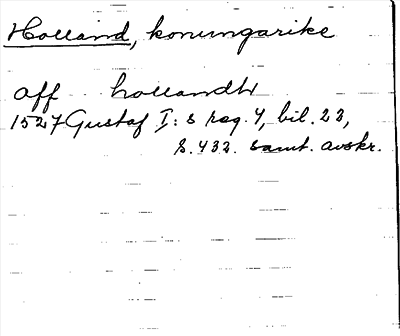 Holland, konungarike
Aff hollandh
1527 Gustaf I:s reg. 4, bil. 23,
S. 432. samt. avskr.